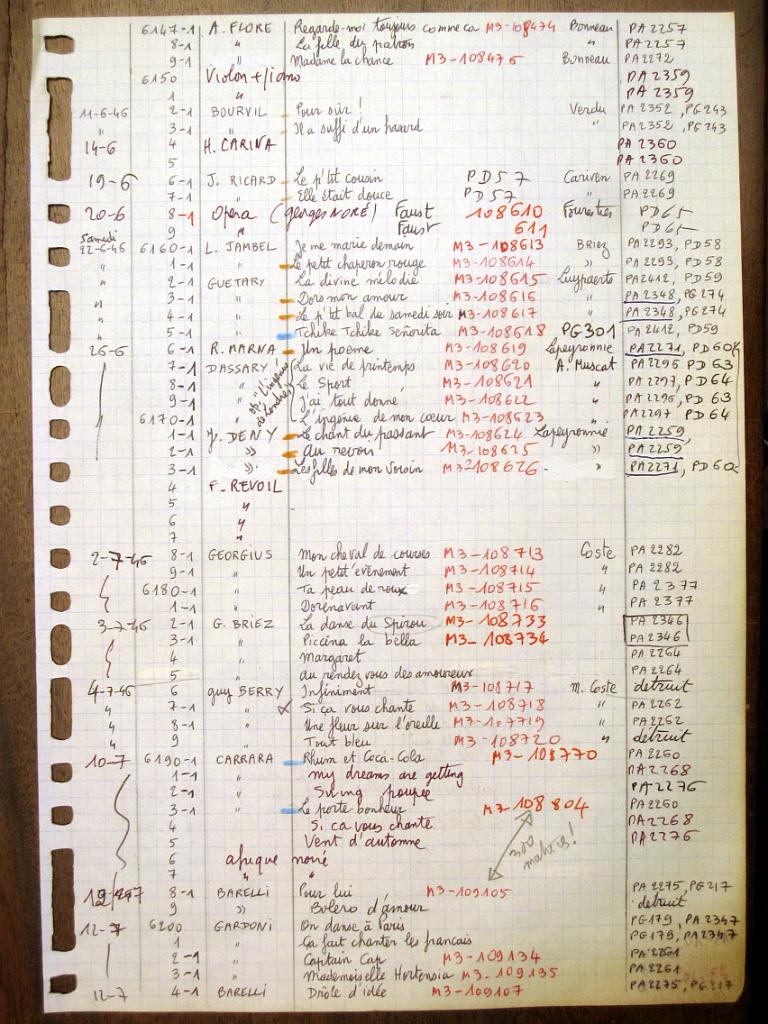 6147-1 A. FLORE Regarde-moi toujours comme ca M3-108474 Bonneau PA 2257
8-1 " La fille du patron " PA 2257
9-1 " Madame la chance M3-108476 Bonneau PA 2272
6150 Violon + piano PA 2359
1 " PA 2359
11-6-46 2-1 BOURVIL Pour sûr! Verdu PA 2352, PG 243
" 3-1 " Il a suffi d'un hasard " PA 2352, PG 243
14-6 4 H. CARINA PA 2360
5 PA 2360
19-6 6-1 J. RICARD Le p'tit cousin PD 57 Cariven PA 2269
7-1 " Elle était douce PD 57 " PA 2269
20-6 8-1 Opera (georges NORÉ) Faust 108610 Fourestier PD 65
9 " Faust 611 " PD 65
Samedi
22-6-46 6160-1 L. JAMBEL Je me marie demain M3-108613 BRIEZ PA 2293, PD 58
" 1-1 " Le petit chaperon rouge M3-108614 » PA 2293, PD 58
" 2-1 GUETARY La divine mélodie M3-108615 Luypaerts PA 2412, PD 59
" 3-1 " Dors mon amour M3-108616 " PA 2348, PG 274
" 4-1 " Le p'tit bal du samedi soir M3-108617 " PA 2348, PG 274
" 5-1 " Tchike Tchike Señorita M3-108618 PG301 PA 2412, PD59
26-6 6-1 R. MARNA Un poeme M3-108619 Lapeyronnie PA 2271, PD 60
7-1 DASSARY La vie de printemps M3-108620 A. Muscat PA 2296 PD 63
8-1 " Le Sport M3-108621 " PA 2297, PD 64
9-1 " J'ai tout donné M3-108622 " PA 2296, PD 63
6170-1 " L'ingénue de mon cœur M3-108623 " PA 2297 PD 64
1-1 J. DENY Le chant du passant M3-108624 Lapeyronnie PA 2259,
2-1 » Au revoir M3-108625 » PA 2259
3-1 » Les filles de mon voisin M3-108626 » PA 2271, PD 60
4 F. REVOIL
5 "
6 "
7 "
2-7-46 8-1 GEORGIUS Mon cheval de courses M3-108713 Coste PA 2282
9-1 " Un petit évènement M3-108714 " PA 2282
6180-1 " Ta peau de roux M3-108715 " PA 2377
1-1 " Dorénavant M3-108716 " PA 2377
3-7-46 2-1 G. BRIEZ La danse du Spirou M3-108733 PA 2346
3-1 " Piccina la bella M3-108734 PA 2346
4 " Margaret PA 2264
5 " au rendez vous des amoureux PA 2264
4-7-46 6 guy BERRY Infiniment M3-108717 M. Coste detruit
" 7-1 " Si ça vous chante M3-108718 " PA 2262
" 8-1 " Une fleur sur l'oreille M3-107719 " PA 2262
" 9 " Tout bleu M3-108720 " détruit
10-7 6190-1 CARRARA Rhum et Coca-Cola M3-108770 PA 2260
1-1 " my dreams are getting PA 2268
2-1 " Swing poupée PA 2276
3-1 " Le porte bonheur M3-108804 PA 2260
4 Si ca vous chante PA 2268
5 Vent d'automne PA 2276
300 matrices!
6 afrique noire
7 " "
8-1 BARELLI Pour lui M3-109105 PA 2275, PG 217
9 » Bolero d'amour detruit
12-7 6200 GARDONI On danse à Paris PG 179, PA 2347
1 " Ça fait chanter les francais PG 179, PA 2347
2-1 " Captain Cap M3-109134 PA 2261
3-1 " Mademoiselle Hortensia M3-109135 PA 2261
12-7 4-1 BARELLI Drôle d'idée M3-109107 PA 2275, PG 217